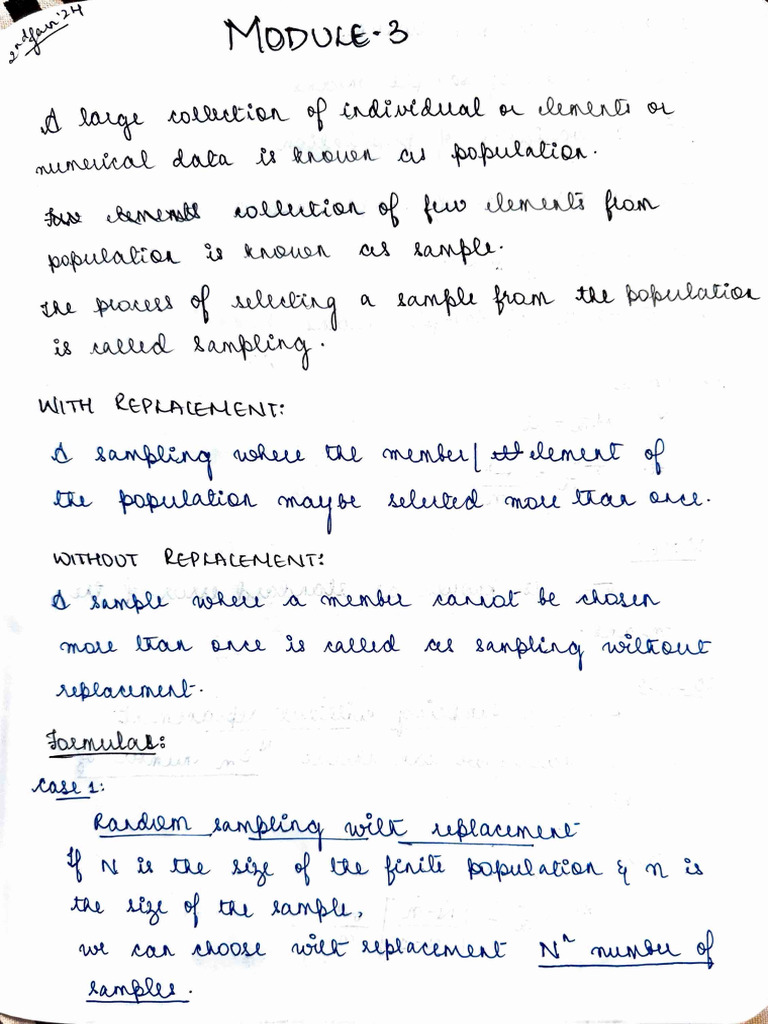 2nd Jan '24
MODULE-3
A large collection of individual or elements or
numerical data is known as population.
collection of few elements from
population is known as sample.
The process of selecting a sample from the population
is called sampling.
WITH REPLACEMENT:
A sampling where the member/ element of
the population maybe selected more than once.
WITHOUT REPLACEMENT:
A sample where a member cannot be chosen
more than once is called as sampling without
replacement.
Formulas:
Case 1:
Random sampling with replacement
If N is the size of the finite population & n is
the size of the sample,
we can choose with replacement Nⁿ number of
samples.